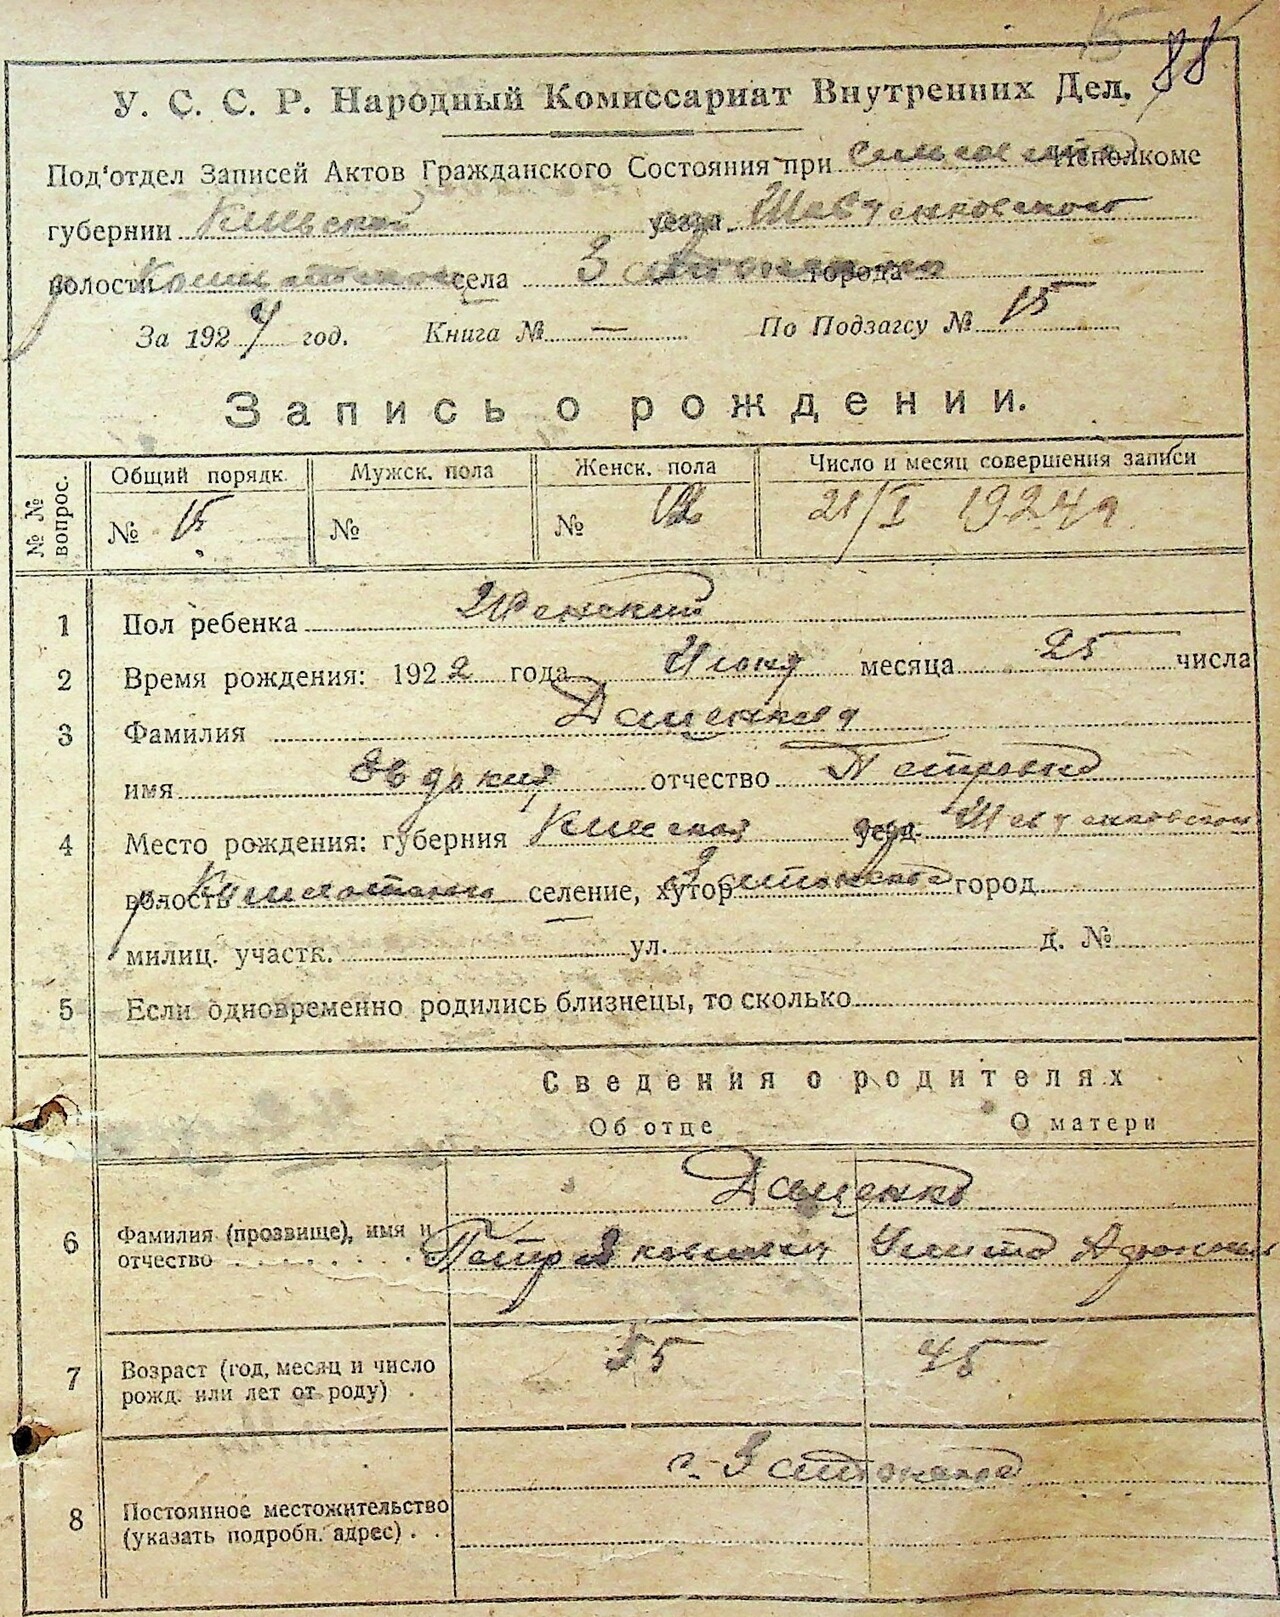 15 88
У. С. С. Р. Народный Комиссариат Внутренних Дел.
Под'отдел Записей Актов Гражданского Состояния при сельсовета Исполкоме
губернии Киевской уезда Шевченковского
волости села города
За 1924 год. Книга № — По Подзагсу № 15
Запись о рождении.
№ № вопрос. Общий порядк. Мужск. пола Женск. пола Число и месяц совершения записи
№ 15 № № 12 21/I 1924 г
1 Пол ребенка Женский
2 Время рождения: 1922 года Июня месяца 25 числа
3 Фамилия Даценкова
имя Евдокия отчество Петровна
4 Место рождения: губерния Киевская уезд Шевченковской
волость селение, хутор город
милиц. участк. ул. д. №
5 Если одновременно родились близнецы, то сколько
Сведения о родителях
Об отце О матери
Даценко
6 Фамилия (прозвище), имя и отчество Петр Улита
7 Возраст (год, месяц и число рожд. или лет от роду) 55 45
8 Постоянное местожительство (указать подробн. адрес)